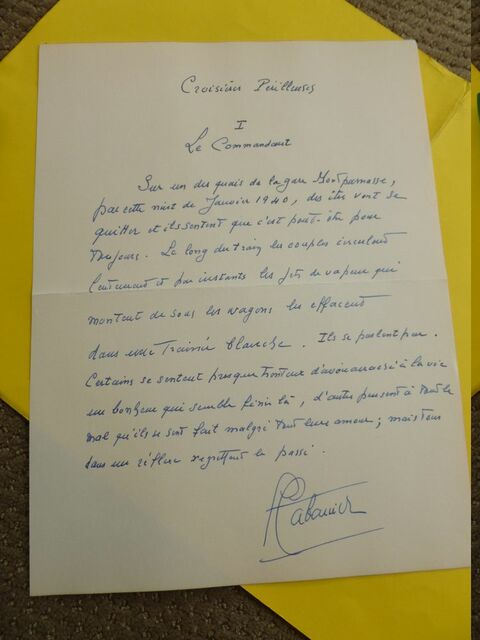 Croisières Périlleuses
I
Le Commandant
Sur un des quais de la gare Montparnasse,
par cette nuit de Janvier 1940, des êtres vont se
quitter et ils sentent que c'est peut-être pour
toujours. Le long du train les couples circulent
lentement et par instants les jets de vapeur qui
montent de sous les wagons les effacent
dans une traînée blanche. Ils se parlent peu.
Certains se sentent presque honteux d'avoir arraché à la vie
un bonheur qui semble fini là, d'autres pensent à tout le
mal qu'ils se sont fait malgré tout leur amour ; mais tous
dans un réflexe regrettent le passé.
Cabanier